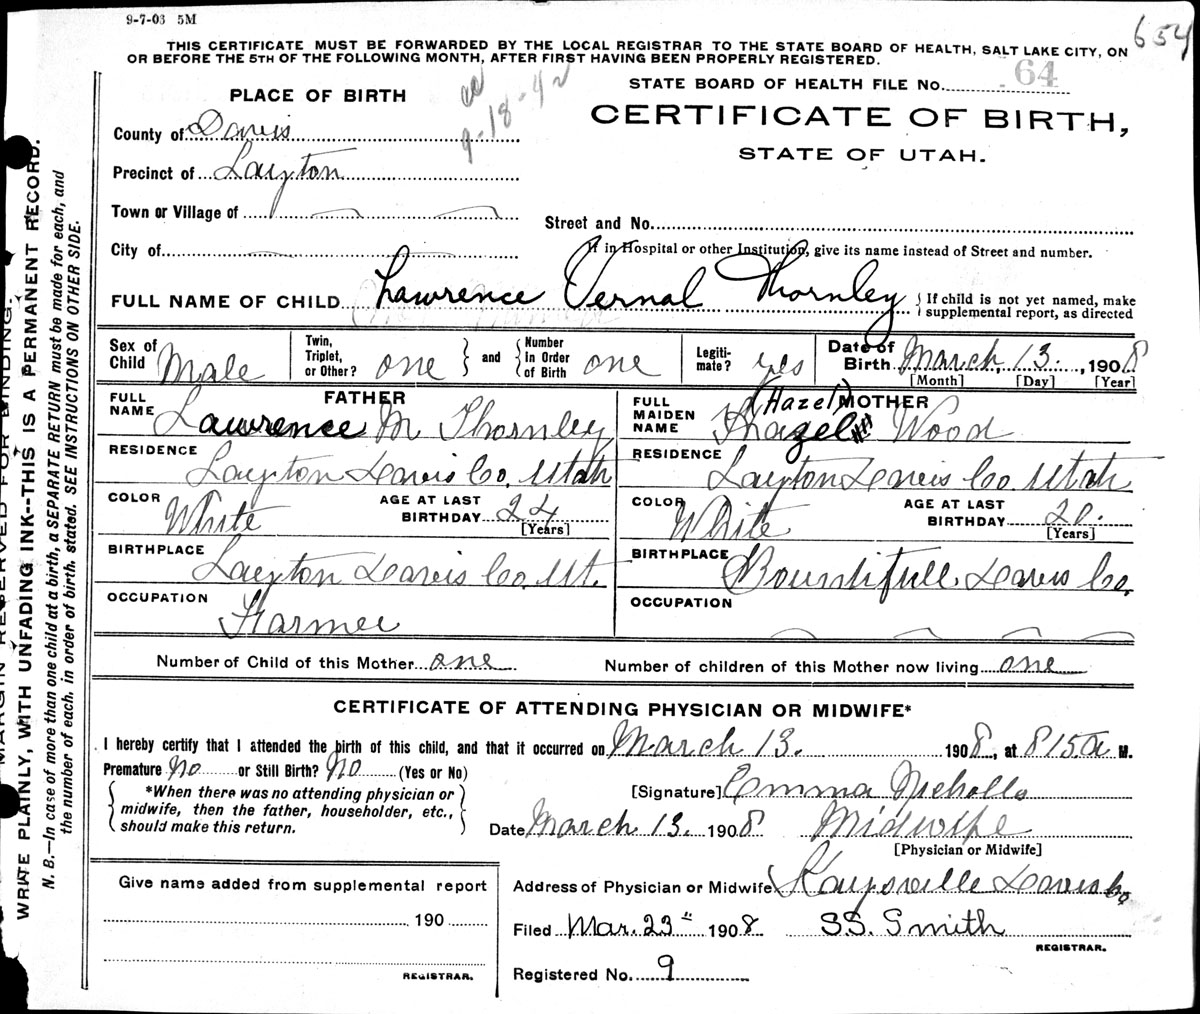 9-7-03 5M
654
THIS CERTIFICATE MUST BE FORWARDED BY THE LOCAL REGISTRAR TO THE STATE BOARD OF HEALTH, SALT LAKE CITY, ON
OR BEFORE THE 5TH OF THE FOLLOWING MONTH, AFTER FIRST HAVING BEEN PROPERLY REGISTERED.
STATE BOARD OF HEALTH FILE No. 64
PLACE OF BIRTH
9-18-42
CERTIFICATE OF BIRTH,
STATE OF UTAH.
County of Davis
Precinct of Layton
Town or Village of
Street and No.
City of
If in Hospital or other Institution, give its name instead of Street and number.
FULL NAME OF CHILD Lawrence Vernal Thornley { If child is not yet named, make
supplemental report, as directed
Sex of Child Male Twin, Triplet, or Other? one } and { Number In Order of Birth one Legiti-mate? yes Date of Birth March, 13. , 1908
[Month] [Day] [Year]
FATHER
FULL NAME Lawrence M Thornley
RESIDENCE Layton Davis Co. Utah
COLOR White AGE AT LAST BIRTHDAY 24 [Years]
BIRTHPLACE Layton Davis Co. Ut.
OCCUPATION Farmer
MOTHER
FULL MAIDEN NAME Hazel (Hazel) Wood
RESIDENCE Layton Davis Co. Utah
COLOR White AGE AT LAST BIRTHDAY 20. [Years]
BIRTHPLACE Bountifull Davis Co.
OCCUPATION
Number of Child of this Mother one Number of children of this Mother now living one
CERTIFICATE OF ATTENDING PHYSICIAN OR MIDWIFE*
I hereby certify that I attended the birth of this child, and that it occurred on March 13. 1908, at 815 a M.
Premature No or Still Birth? No (Yes or No)
*When there was no attending physician or
midwife, then the father, householder, etc.,
should make this return.
[Signature] Emma Nicholls
Date March 13. 1908 Midwife
[Physician or Midwife]
Give name added from supplemental report
190
REGISTRAR.
Address of Physician or Midwife Kaysville Davis Co
Filed Mar. 23" 1908 S.S. Smith
REGISTRAR.
Registered No. 9
MARGIN RESERVED FOR BINDING.
WRITE PLAINLY, WITH UNFADING INK--THIS IS A PERMANENT RECORD.
N. B.—In case of more than one child at a birth, a SEPARATE RETURN must be made for each, and
the number of each, in order of birth, stated. SEE INSTRUCTIONS ON OTHER SIDE.